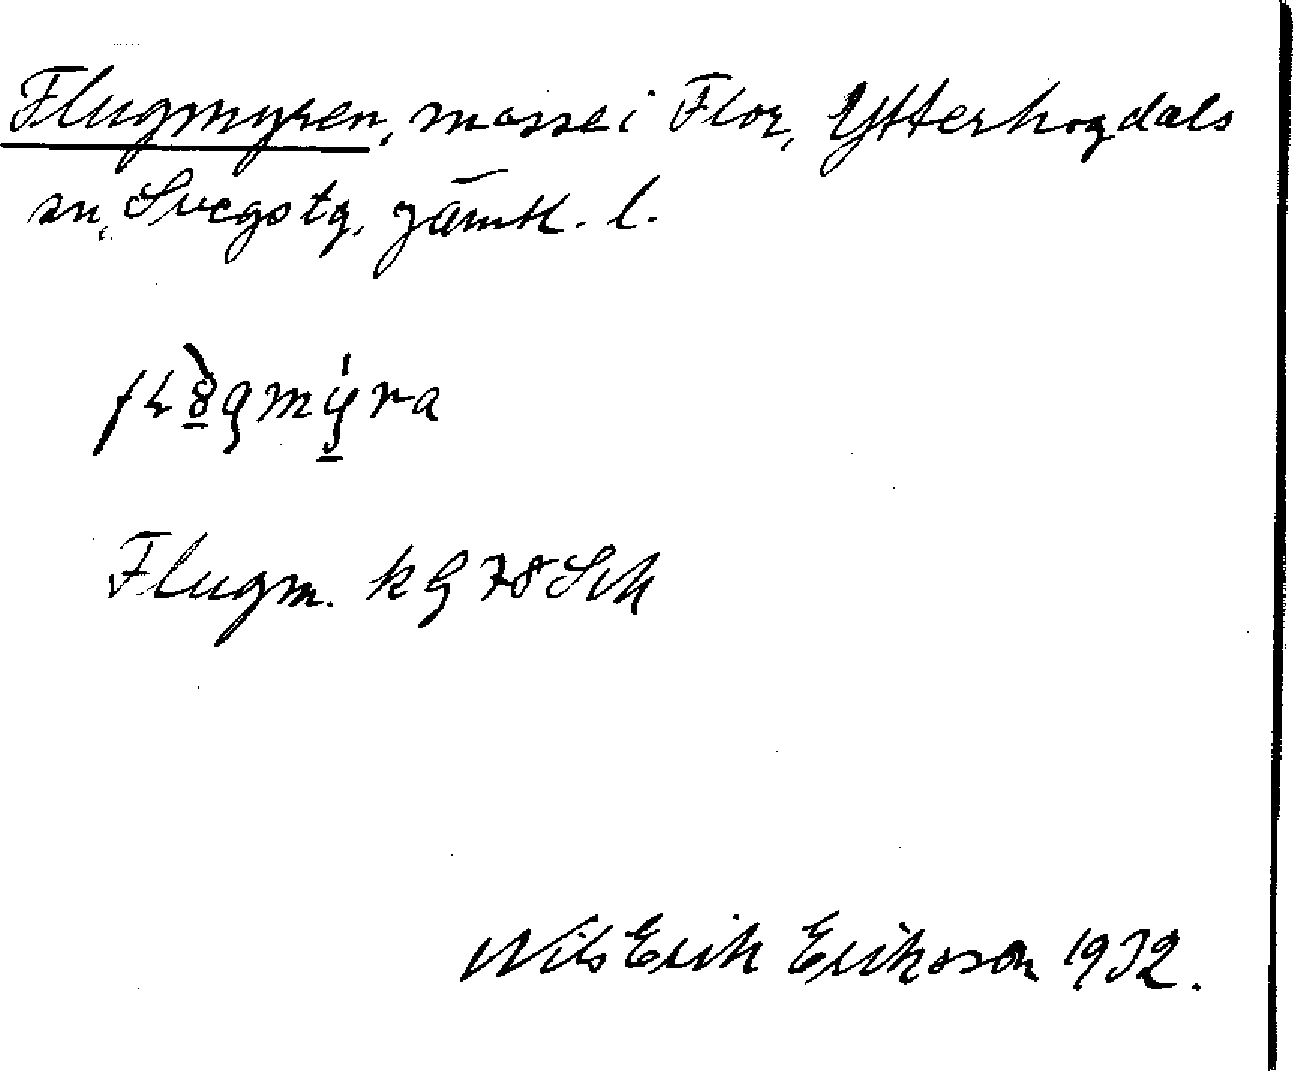 Flugmyren, mosse i Flor, Ytterhogdals
sn, Svegs tg, Jämtl. l.
Flugm. k G 78 Sch
Nils Erik Eriksson 1932.